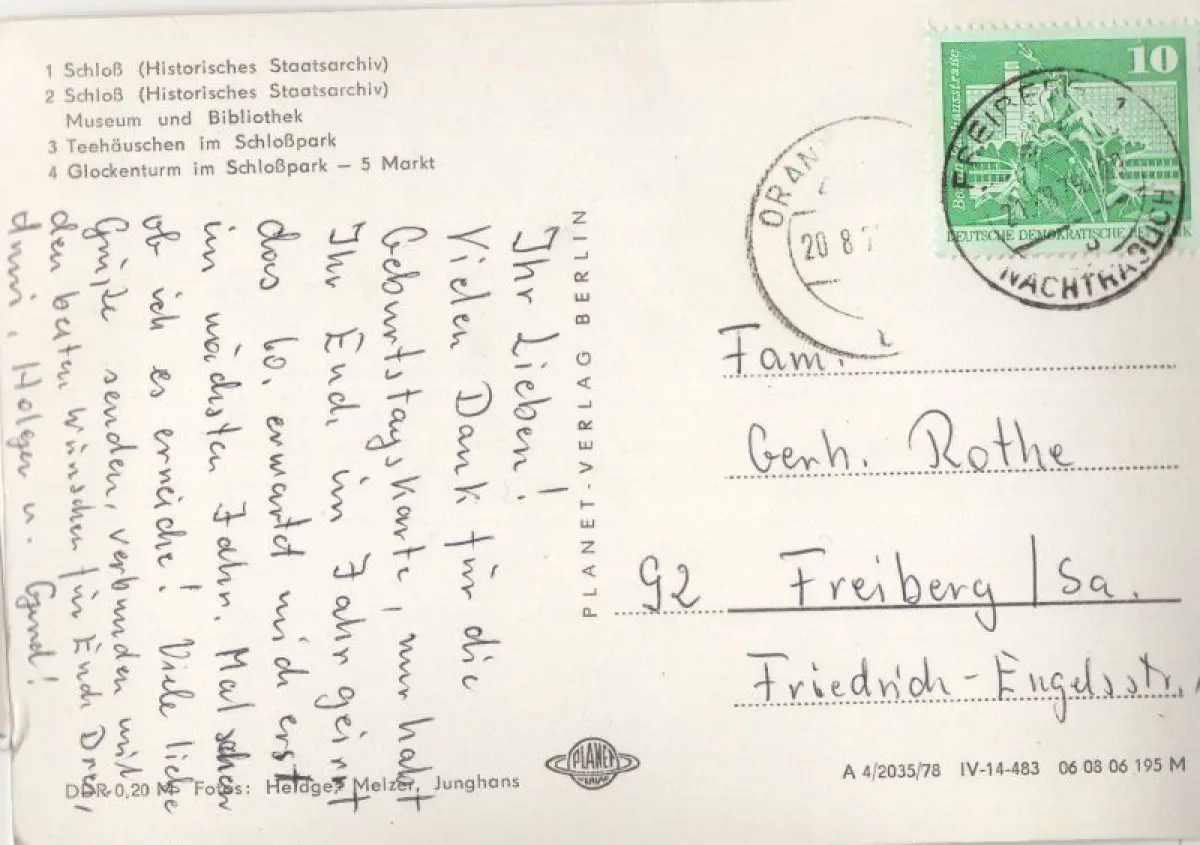 1 Schloß (Historisches Staatsarchiv)
2 Schloß (Historisches Staatsarchiv)
Museum und Bibliothek
3 Teehäuschen im Schloßpark
4 Glockenturm im Schloßpark – 5 Markt
Ihr Lieben!
Vielen Dank für die
Geburtstagskarte, nur habt
Ihr Euch im Jahr geirrt
das 60. erwartet mich erst
im nächsten Jahr. Mal sehen
ob ich es erreiche! Viele liebe
Grüße senden, verbunden mit
den besten Wünschen für Euch Drei,
Holger u. Gund!
PLANET-VERLAG BERLIN
DDR 0,20 M Fotos: Heldge, Melzer, Junghans
PLANET
VERLAG
10
DEUTSCHE DEMOKRATISCHE REPUBLIK
ORAN
20 8 7
FREIBERG
NACHTRÄGLICH
Fam.
Gerh. Rothe
92 Freiberg / Sa.
Friedrich-Engelsstr.
A 4/2035/78 IV-14-483 06 08 06 195 M